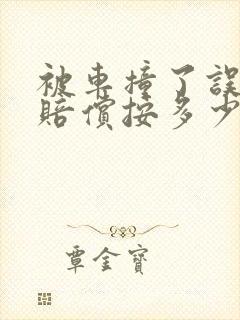 被車撞了誤
賠償按多少
覃金寶